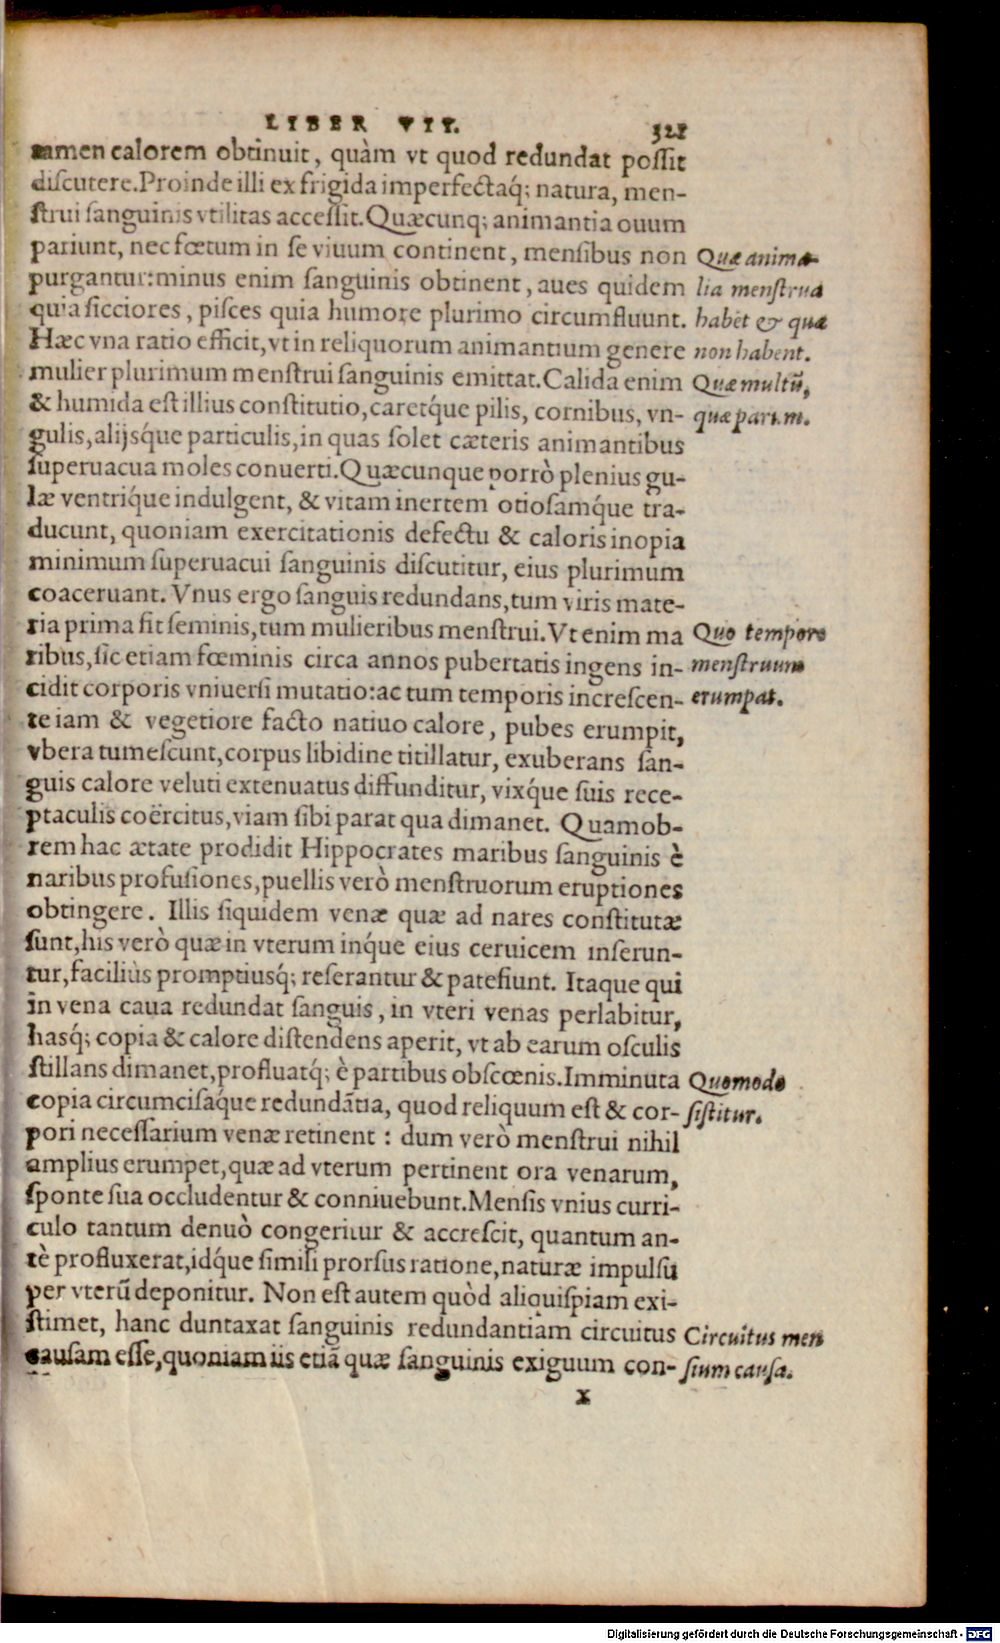 LIBER VII. 321
tamen calorem obtinuit, quàm vt quod redundat possit
discutere. Proinde illi ex frigida imperfectaq́; natura, men-
strui sanguinis vtilitas accessit. Quæcunq; animantia ouum
pariunt, nec fœtum in se viuum continent, mensibus non
purgantur: minus enim sanguinis obtinent, aues quidem
quia sicciores, pisces quia humore plurimo circumfluunt.
Hæc vna ratio efficit, vt in reliquorum animantium genere
mulier plurimum menstrui sanguinis emittat. Calida enim
& humida est illius constitutio, caretq́ue pilis, cornibus, vn-
gulis, alijsq́ue particulis, in quas solet cæteris animantibus
superuacua moles conuerti. Quæcunque porrò plenius gu-
læ ventriq́ue indulgent, & vitam inertem otiosamq́ue tra-
ducunt, quoniam exercitationis defectu & caloris inopia
minimum superuacui sanguinis discutitur, eius plurimum
coaceruant. Vnus ergo sanguis redundans, tum viris mate-
ria prima fit seminis, tum mulieribus menstrui. Vt enim ma
ribus, sic etiam fœminis circa annos pubertatis ingens in-
cidit corporis vniuersi mutatio: ac tum temporis increscen-
te iam & vegetiore facto natiuo calore, pubes erumpit,
vbera tumescunt, corpus libidine titillatur, exuberans san-
guis calore veluti extenuatus diffunditur, vixq́ue suis rece-
ptaculis coërcitus, viam sibi parat qua dimanet. Quamob-
rem hac ætate prodidit Hippocrates maribus sanguinis è
naribus profusiones, puellis verò menstruorum eruptiones
obtingere. Illis siquidem venæ quæ ad nares constitutæ
sunt, his verò quæ in vterum inq́ue eius ceruicem inserun-
tur, faciliùs promptiusq́; reserantur & patefiunt. Itaque qui
in vena caua redundat sanguis, in vteri venas perlabitur,
hasq́; copia & calore distendens aperit, vt ab earum osculis
stillans dimanet, profluatq́; è partibus obscœnis. Imminuta
copia circumcisaq́ue redundãtia, quod reliquum est & cor-
pori necessarium venæ retinent : dum verò menstrui nihil
amplius erumpet, quæ ad vterum pertinent ora venarum,
sponte sua occludentur & conniuebunt. Mensis vnius curri-
culo tantum denuò congeritur & accrescit, quantum an-
tè profluxerat, idq́ue simili prorsus ratione, naturæ impulsu
per vterũ deponitur. Non est autem quòd aliquispiam exi-
stimet, hanc duntaxat sanguinis redundantiam circuitus
causam esse, quoniam iis etiã quæ sanguinis exiguum con-
X
Quæ anima
lia menstrua
habẽt & quæ
non habent.
Quæ multũ,
quæ parum.
Quo tempore
menstruum
erumpat.
Quomodo
sistitur.
Circuitus men
sium causa.
Digitalisierung gefördert durch die Deutsche Forschungsgemeinschaft - DFG